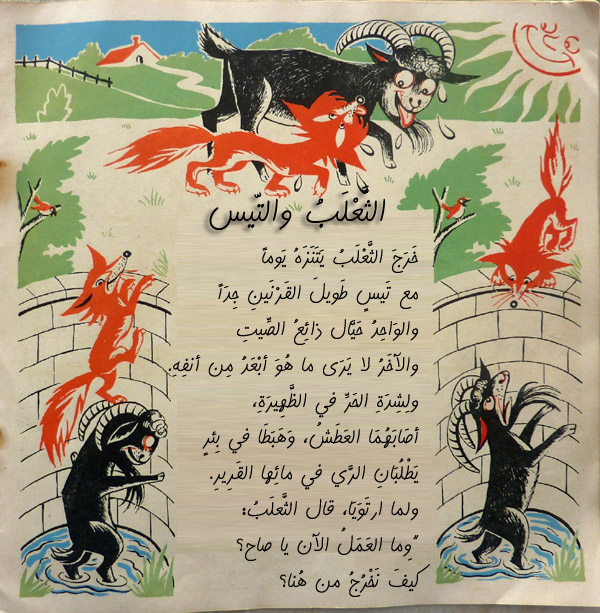 الثَّعْلَبُ والتّيس
خَرَجَ الثَّعْلَبُ يَتَنَزَهُ يَوماً
مع تَيسٍ طَويلَ القَرْنَينِ جِدَاً
والوَاحِدُ حَيَّال ذائِعُ الصِّيتِ
والآخَرُ لا يَرَى ما هُوَ أبْعَدُ مِن أنفِهِ.
ولِشدَةِ الحَرِّ في الظَّهِيرَةِ،
أصَابَهُمَا العَطَشُ، وَهَبَطَا في بِئرٍ
يَطْلُبَان الرَّي في مائِها القَرِيرِ.
ولما اَرتَوَيَا، قال الثَّعلَبُ:
"وِما العَمَلُ الآن يا صاح؟
كيفَ نَخْرُجُ من هُنا؟